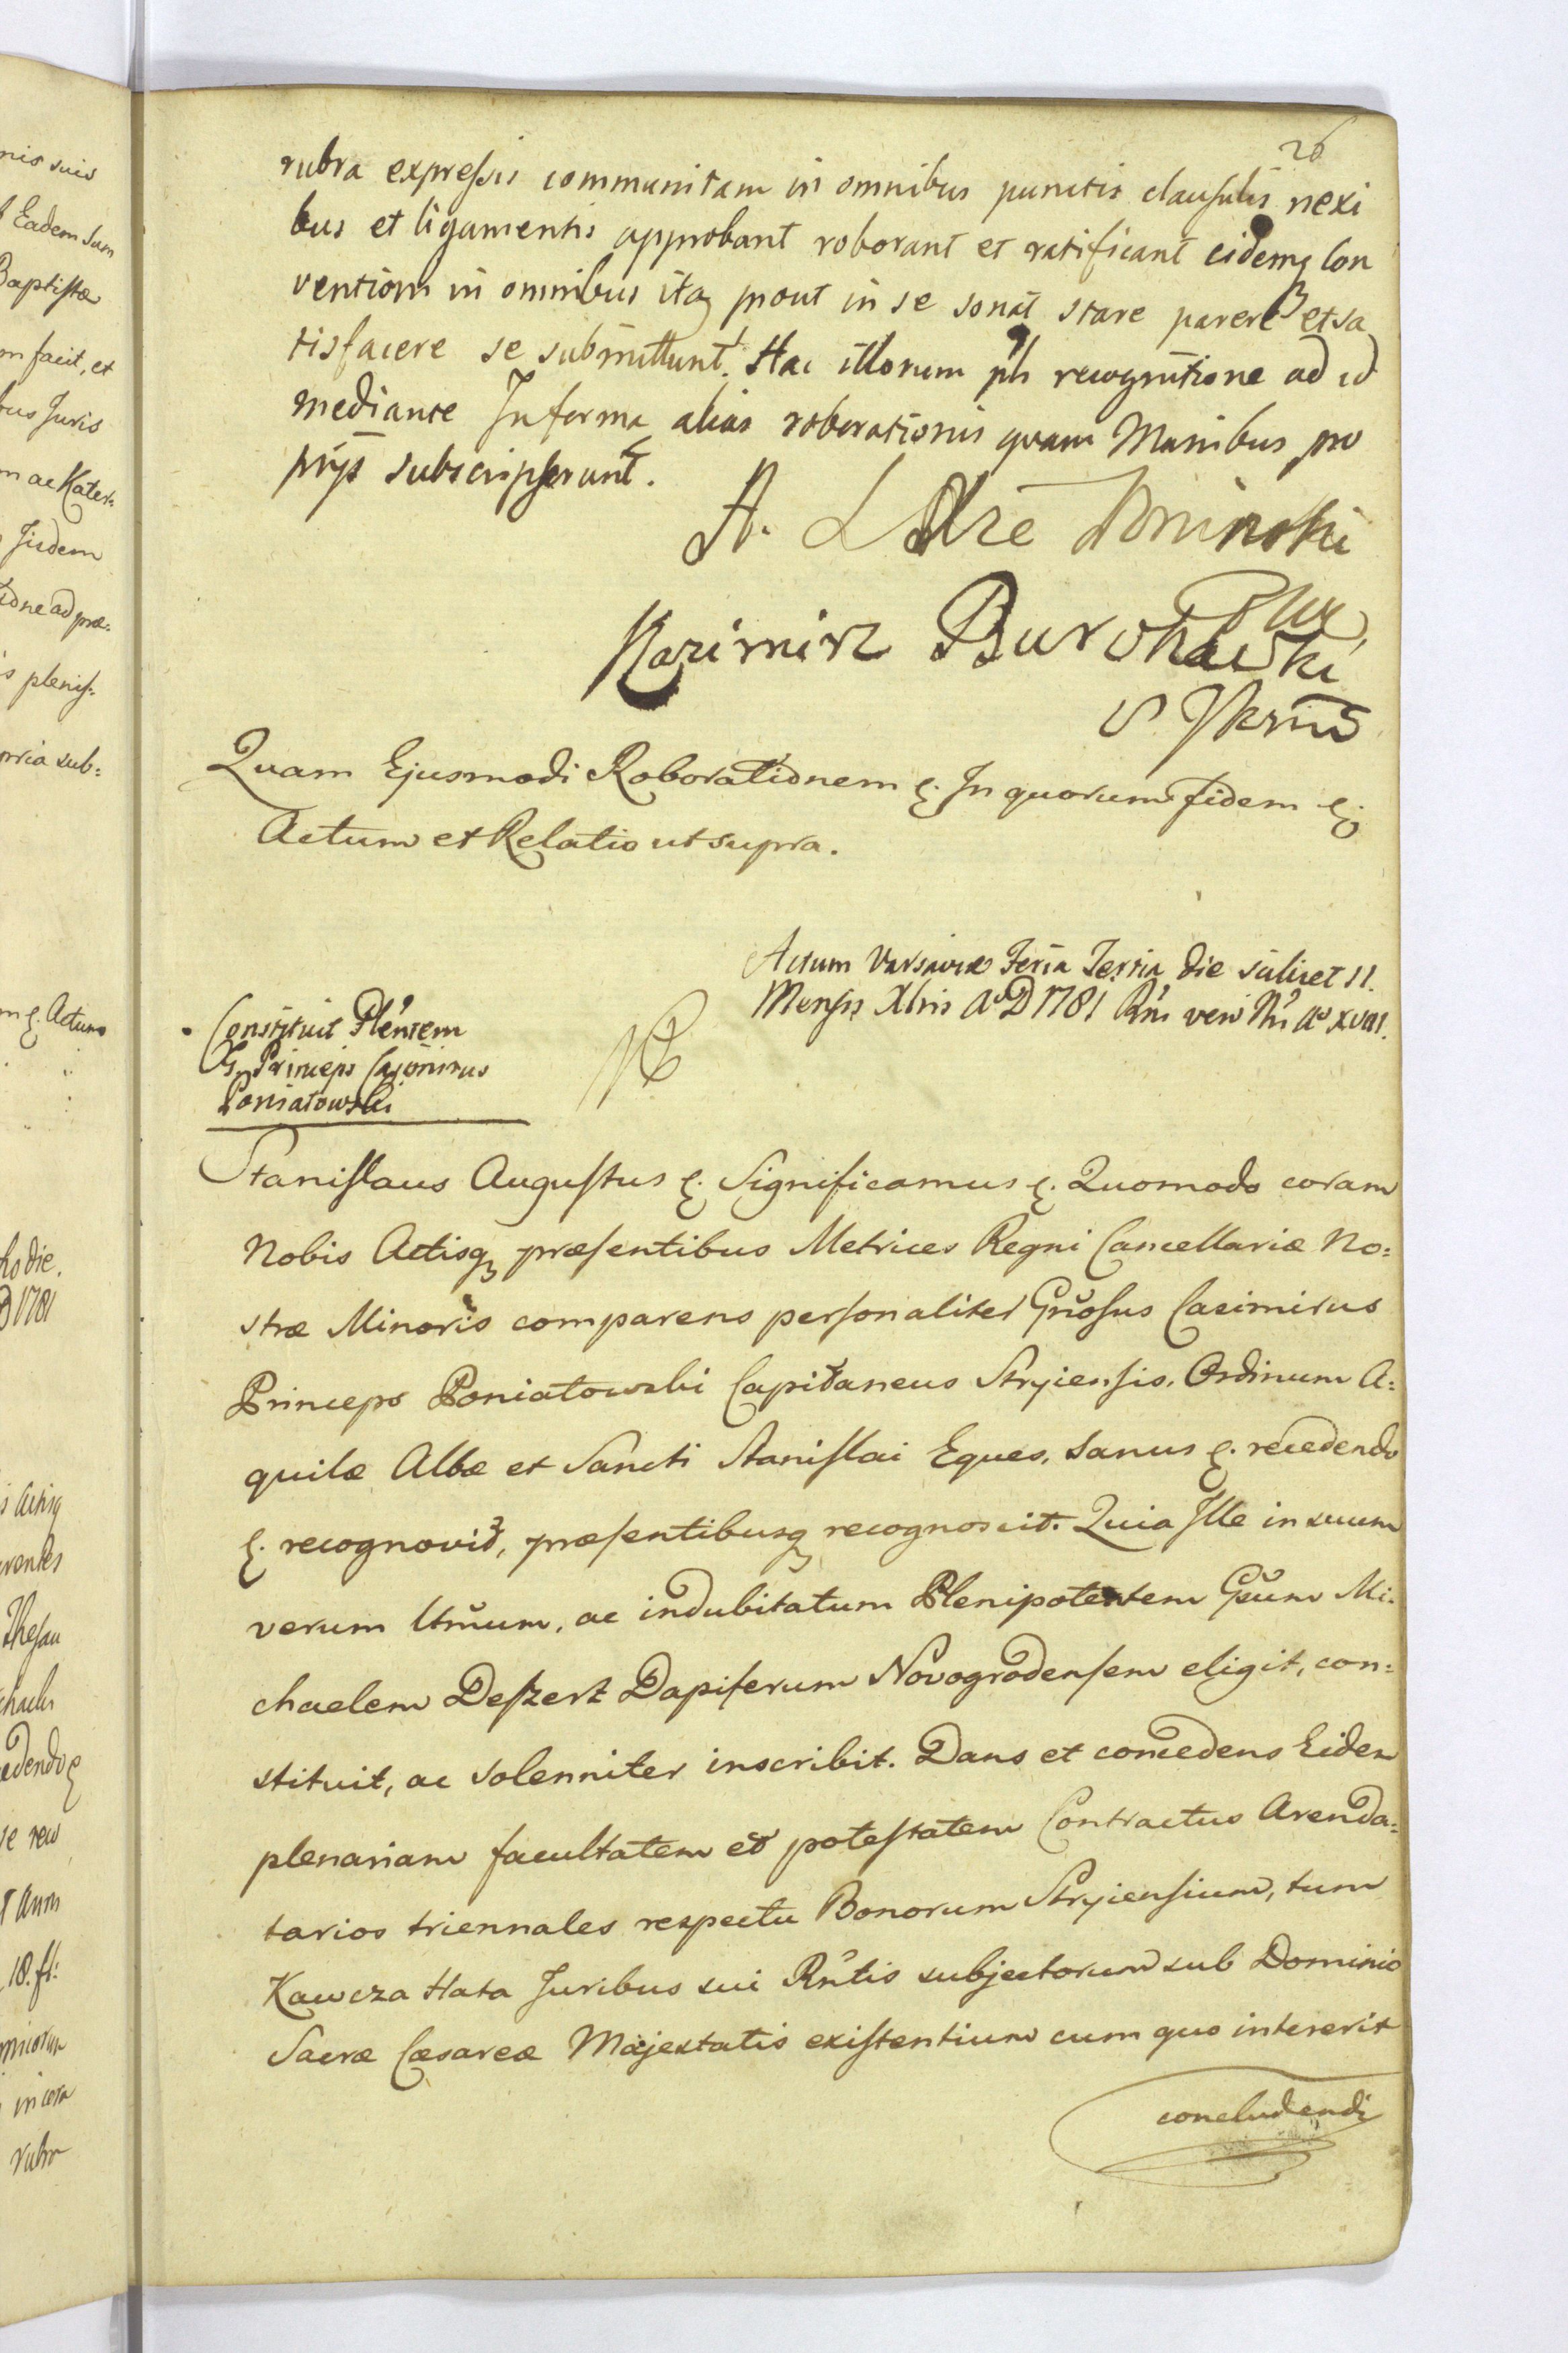 26
rubra expressis communitam in omnibus punctis clausulis nexi
bus et ligamentis approbant roborant et ratificant eidemq Con
ventioni in omnibus itaq prout in se sonat stare parere et sa
tisfacere se submittunt. Hac illorum recognitione ad id
mediante In forma alias roborationis quam Manibus pro
prijs subscripserunt.
A. Łodzie Poniński
Kazimirz Burchacki
Quam Ejusmodi Roborationem &. In quorum fidem &.
Actum et Relatio ut supra.
Actum Varsaviæ Feria Tertia die scilicet 11.
Mensis Xbris Ao D 1781 Rni vero Nri Ao XVIII.
Constituit Plentem
Gs Princeps Casimirus
Poniatowski
Stanislaus Augustus &. Significamus &. Quomodo coram
Nobis Actisq præsentibus Metrices Regni Cancellariæ No=
stræ Minoris comparens personaliter Gnosus Casimirus
Princeps Poniatowski Capitaneus Stryiensis, Ordinum A=
quilæ Albæ et Sancti Stanislai Eques, sanus &. recedendo
&. recognovit, præsentibusq recognoscit. Quia Ille in suum
verum ltmum, ac indubitatum Plenipotentem Gsum Mi=
chaelem Deszert Dapiferum Novogrodensem eligit, con=
stituit, ac solenniter inscribit. Dans et concedens Eidem
plenariam facultatem et potestatem Contractus Arenda=
tarios triennales respectu Bonorum Stryiensium, tum
Kawcza Hata Juribus sui Rntis subjectorum sub Dominio
Sacræ Cæsareæ Majestatis existentium cum quo intererit
concludendi
nis suis
Eadem Sum
Baptista
m facit, et
bus Juris
m ac Kater=
Jisdem
tione ad præ=
s pleniss=
pria sub=
m &. Actum
hodie.
D 1781
s Actisq
Thesau
chaelis
edendo &
se reco
t Ann
18. fl:
in cera
rubra